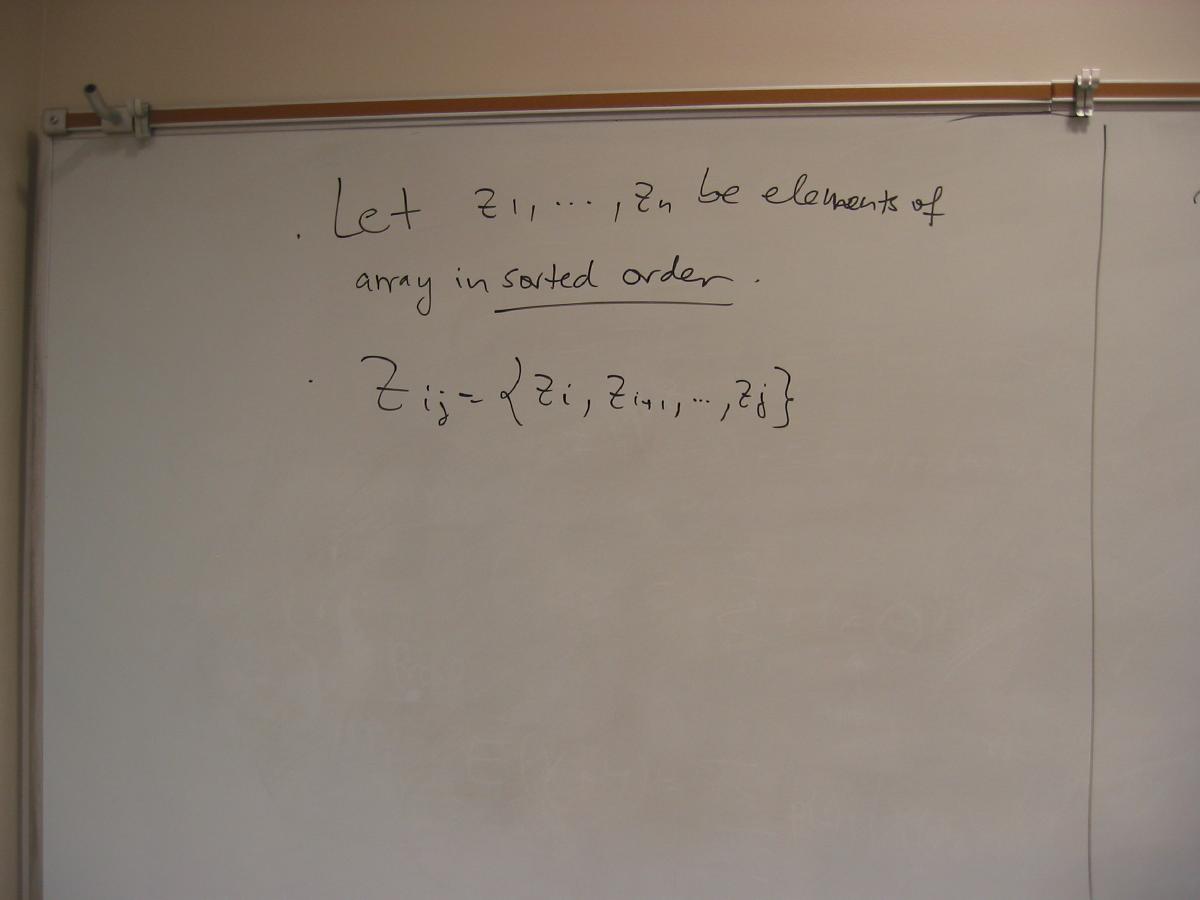 . Let z1, ..., zn be elements of
array in sorted order.
. Zij = {zi, zi+1, ..., zj}